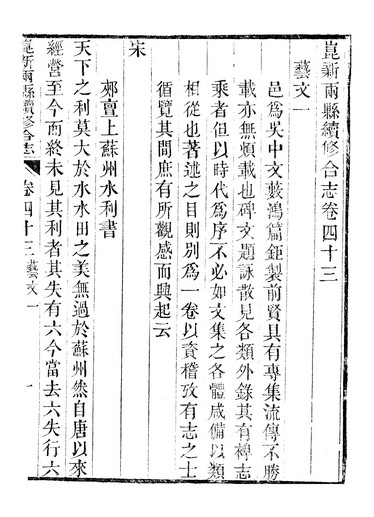 崑新兩縣續修合志卷四十三
藝文一
邑爲吳中文藪鴻篇鉅製前賢具有專集流傳不勝
載亦無煩載也碑文題詠散見各類外錄其有裨志
乘者但以時代爲序不必如文集之各體咸備以類
相從也著述之目則別爲一卷以資稽攷有志之士
循覽其間庶有所觀感而興起云
宋
郟亶上蘇州水利書
天下之利莫大於水水田之美無過於蘇州然自唐以來
經營至今而終未見其利者其失有六今當去六失行六
崑新兩縣續修合志
卷四十三
藝文一
一